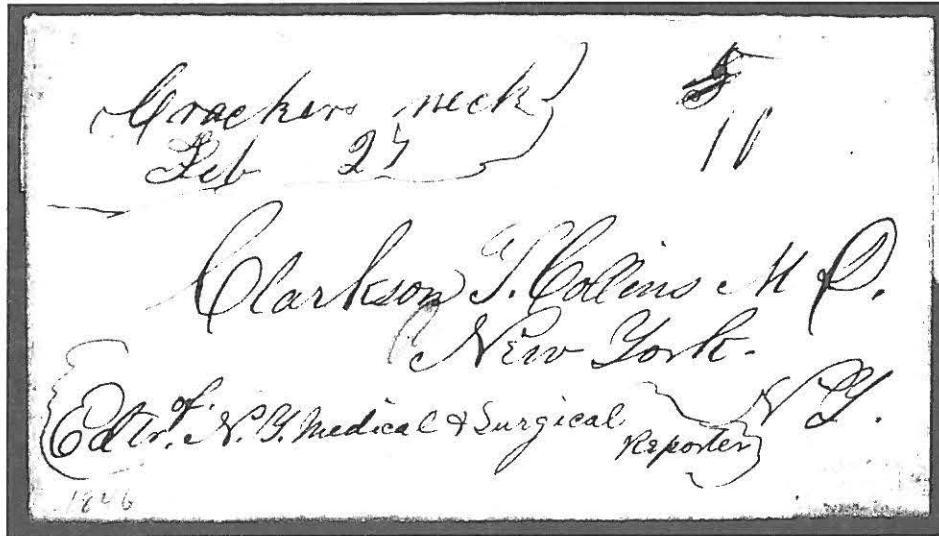 Crackers neck
Feb 27
10
Clarkson T. Collins M D.
New York.
N Y.
Edtr. of N. Y. Medical & Surgical
Reporter
1846